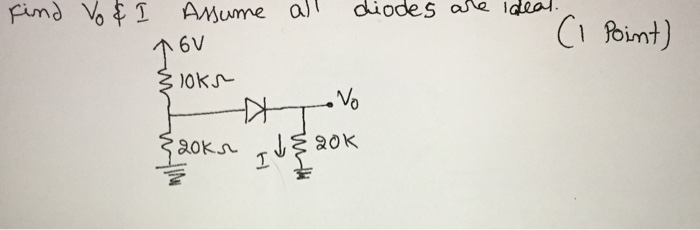 Find V₀ & I Assume all diodes are ideal.
(1 Point)
↑ 6V
10KΩ
V₀
20KΩ
I ↓
20K